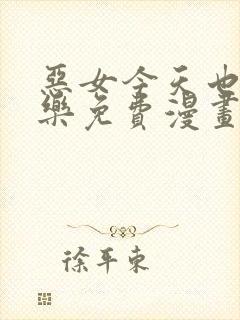 惡女今天也
樂免費漫畫
徐平東